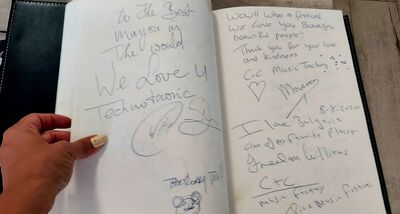 to the Best
mayor in
The would
We Love U
Technotronic
Wow!! What a festival
We love you Bourgas
beautiful people!!
Thank you for your love
and kindness
C+C Music Factory
8-8-2020
I love Bulgaria
one of my favorite places
Freedom Williams
C+C
music factory
Music Festival